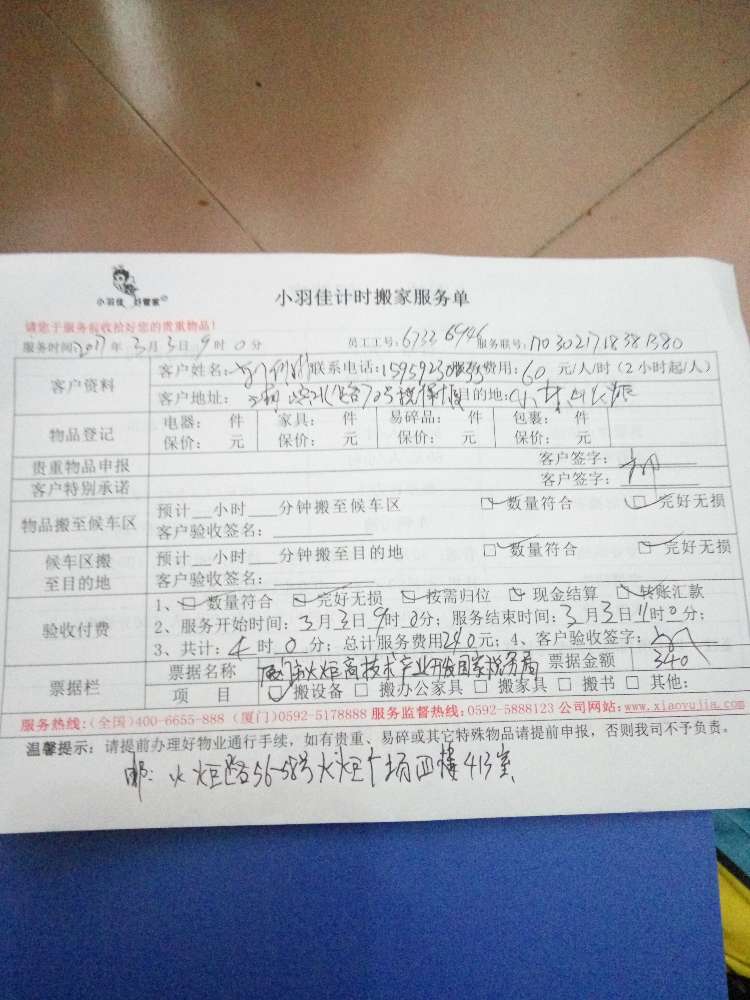 小羽佳 好管家
小羽佳计时搬家服务单
请您于服务前收拾好您的贵重物品!
服务时间:2017年3月3日9时0分 员工工号:6733 6946 服务联号:
客户资料 客户姓名: 联系电话: 费用:60元/人/时(2小时起/人)
客户地址: 目的地:
物品登记 电器: 件 家具: 件 易碎品: 件 包裹: 件
保价: 元 保价: 元 保价: 元 保价: 元
贵重物品申报 客户签字:
客户特别承诺 客户签字:
物品搬至候车区 预计__小时___分钟搬至候车区 □数量符合 □完好无损
客户验收签名:
候车区搬至目的地 预计__小时___分钟搬至目的地 □数量符合 □完好无损
客户验收签名:
验收付费 1、□数量符合 □完好无损 □按需归位 □现金结算 □转账汇款
2、服务开始时间:3月3日9时0分; 服务结束时间:3月3日11时0分;
3、共计:4时0分; 总计服务费用240元; 4、客户验收签字:
票据栏 票据名称 厦门市火炬高技术产业开发国家税务局 票据金额 340
项 目 □搬设备 □搬办公家具 □搬家具 □搬书 □其他:
服务热线:(全国)400-6655-888 (厦门)0592-5178888 服务监督热线:0592-5888123 公司网站:www.xiaoyujia.com
温馨提示: 请提前办理好物业通行手续, 如有贵重、易碎或其它特殊物品请提前申报, 否则我司不予负责。
邮: 火炬路56-58号火炬广场四楼413室